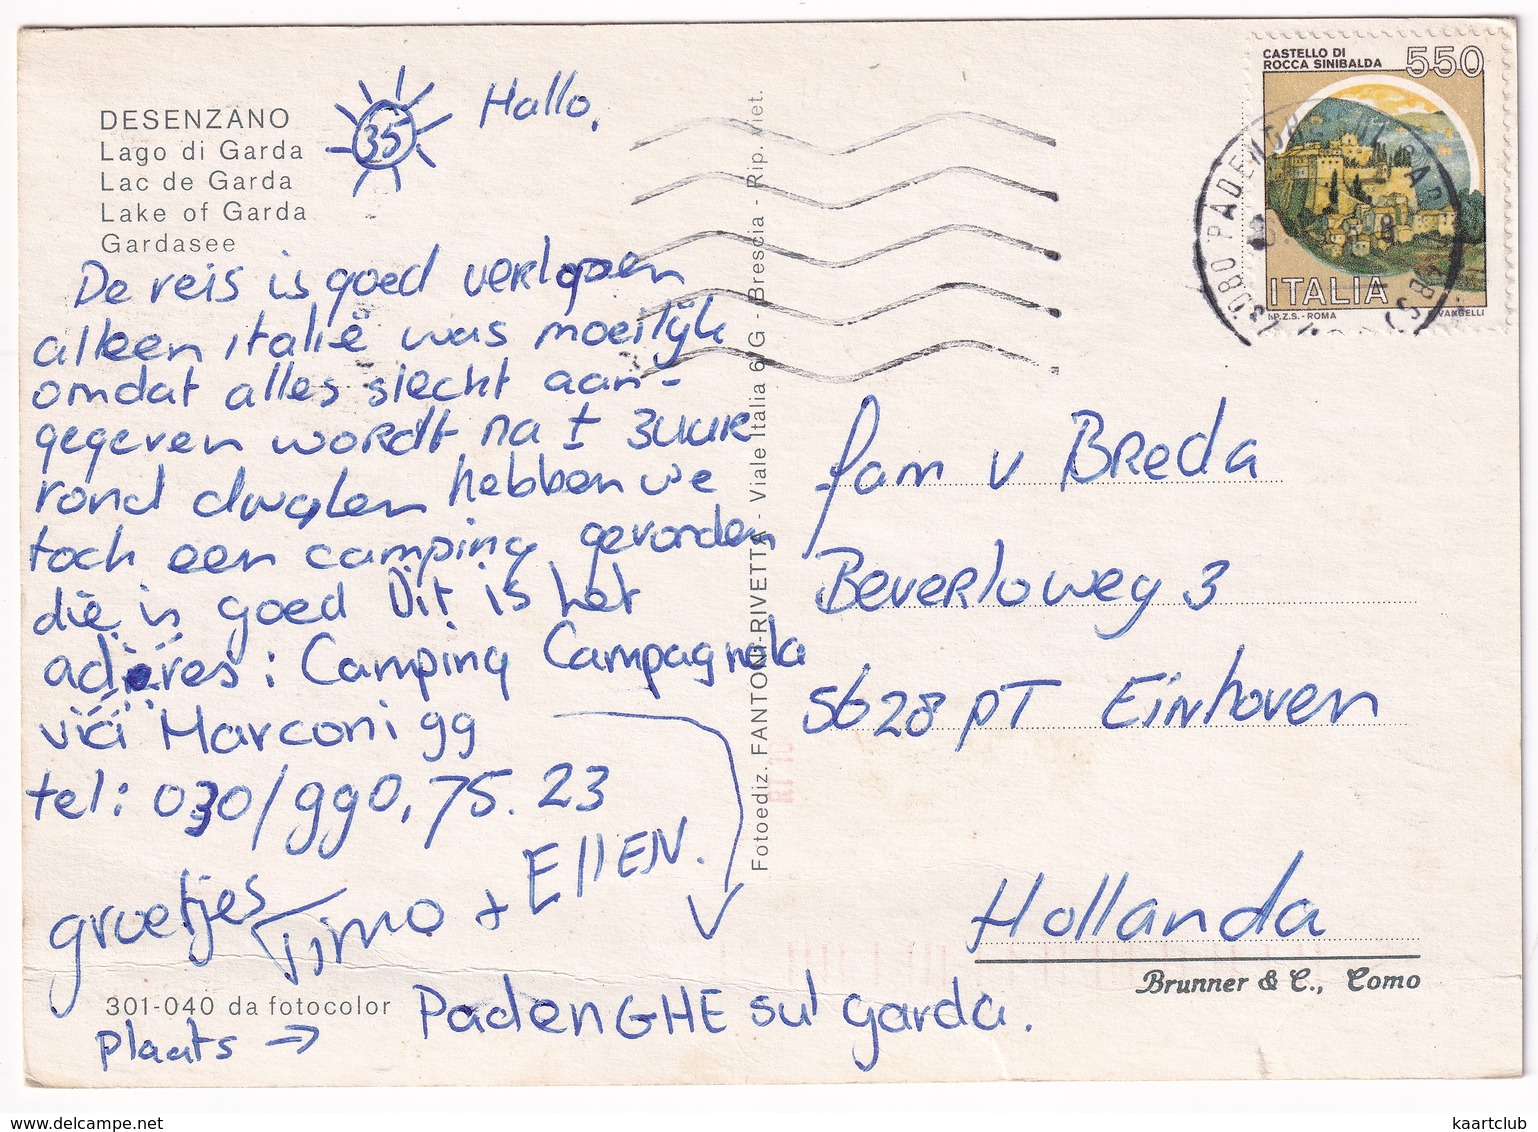 DESENZANO
Lago di Garda
Lac de Garda
Lake of Garda
Gardasee
35
Hallo,
De reis is goed verlopen
alleen italië was moeilijk
omdat alles slecht aan-
gegeven wordt na ± 3 uur
rond dwalen hebben we
toch een camping gevonden
die is goed Dit is het
adres: Camping Campagnola
via Marconi 99
tel: 030/990.75.23
groetjes
Timo + EllEN.
301-040 da fotocolor
Plaats → PadenGHE sul garda.
Fotoediz. FANTONI-RIVETTA - Viale Italia 6/G - Brescia - Rip. Viet.
CASTELLO DI
ROCCA SINIBALDA
550
ITALIA
I.P.Z.S. - ROMA
E. VANGELLI
PADENGHE
fam v Breda
Beverloweg 3
5628 PT Einhoven
Hollanda
Brunner & C., Como
kaartclub